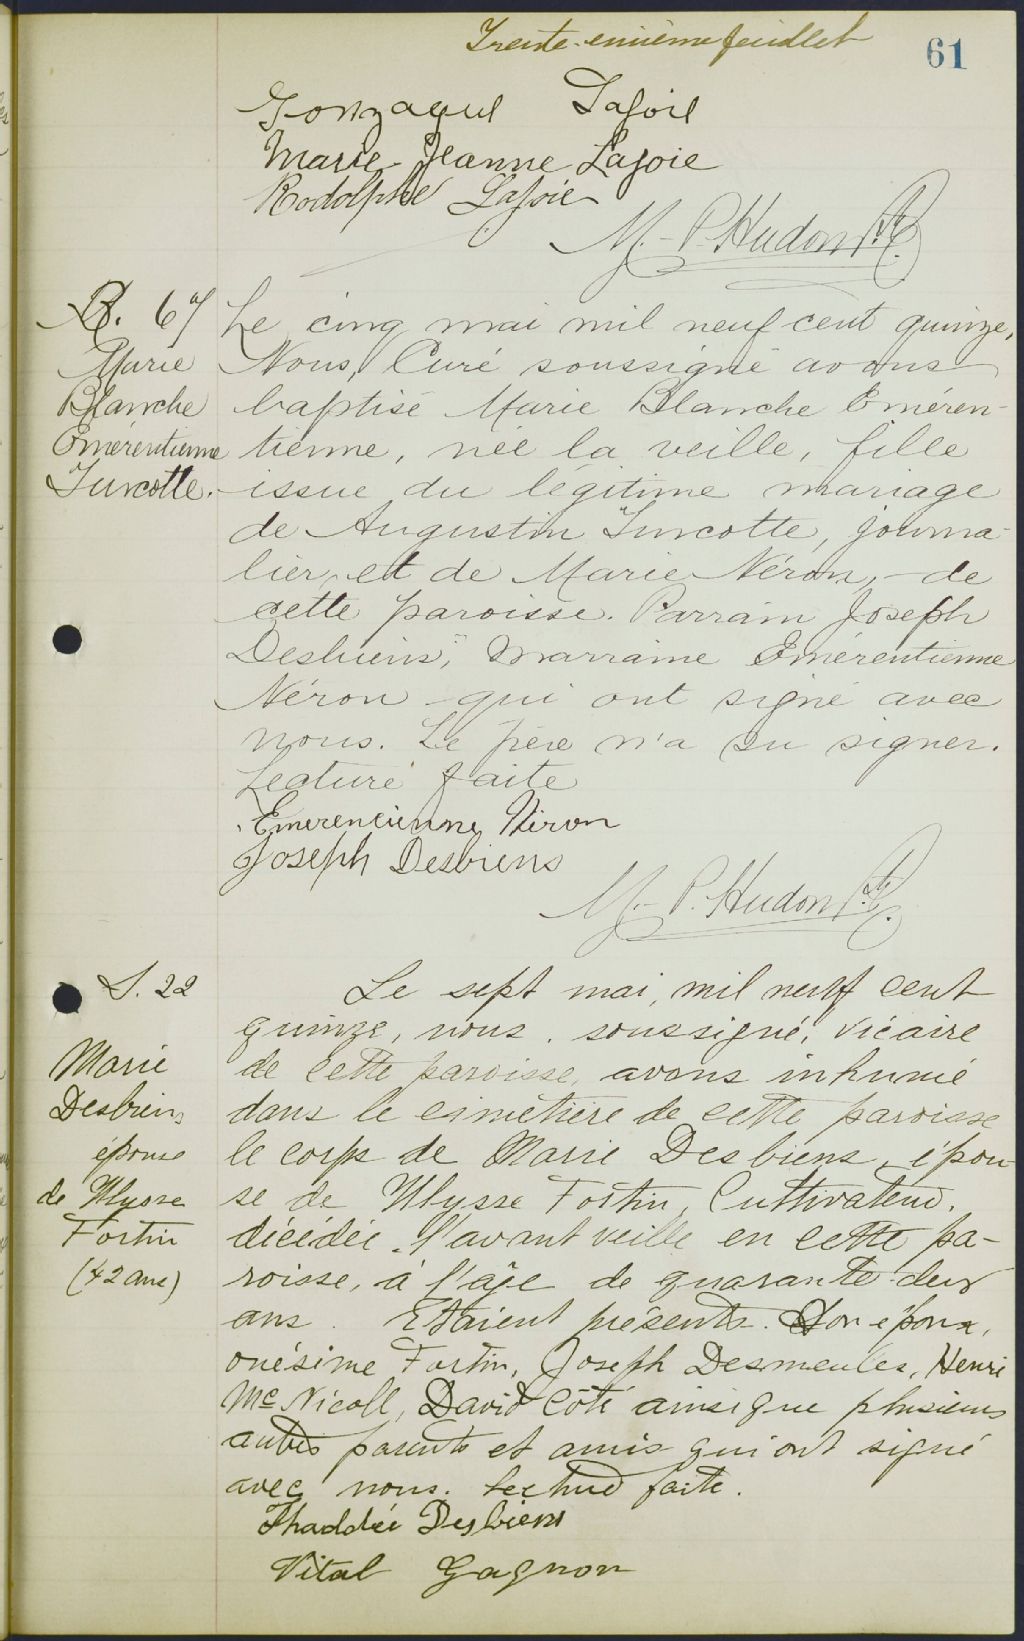 Trente-enième feuillet
61
Gonzague Lajoie
Marie-Jeanne Lajoie
Rodolphe Lajoie
M.-P. Hudon Ptre
B. 67
Marie
Blanche
Emérentienne
Turcotte.
Le cinq mai mil neuf cent quinze,
Nous, Curé soussigné avons
baptisé Marie Blanche Eméren-
tienne, née la veille, fille
issue du légitime mariage
de Augustin Turcotte, journa-
lier, et de Marie Néron, de
cette paroisse. Parrain Joseph
Desbiens, Marraine Emérentienne
Néron qui ont signé avec
nous. Le père n'a su signer.
Lecture faite
Emerencienne Néron
Joseph Desbiens
M.-P. Hudon Ptre
S. 22
Marie
Desbiens
épouse
de Ulysse
Fortin
(42 ans)
Le sept mai, mil neuf cent
quinze, nous, soussigné, vicaire
de cette paroisse, avons inhumé
dans le cimétière de cette paroisse
le corps de Marie Desbiens, épou-
se de Ulysse Fortin, Cultivateur,
décédée l'avant veille en cette pa-
roisse, à l'âge de quarante-deux
ans. Etaient présents. Son époux,
onésime Fortin, Joseph Desmeules, Henri
McNicoll, David Côté ainsi que plusieurs
autres parents et amis qui ont signé
avec nous. Lecture faite.
Thaddée Desbiens
Vital Gagnon